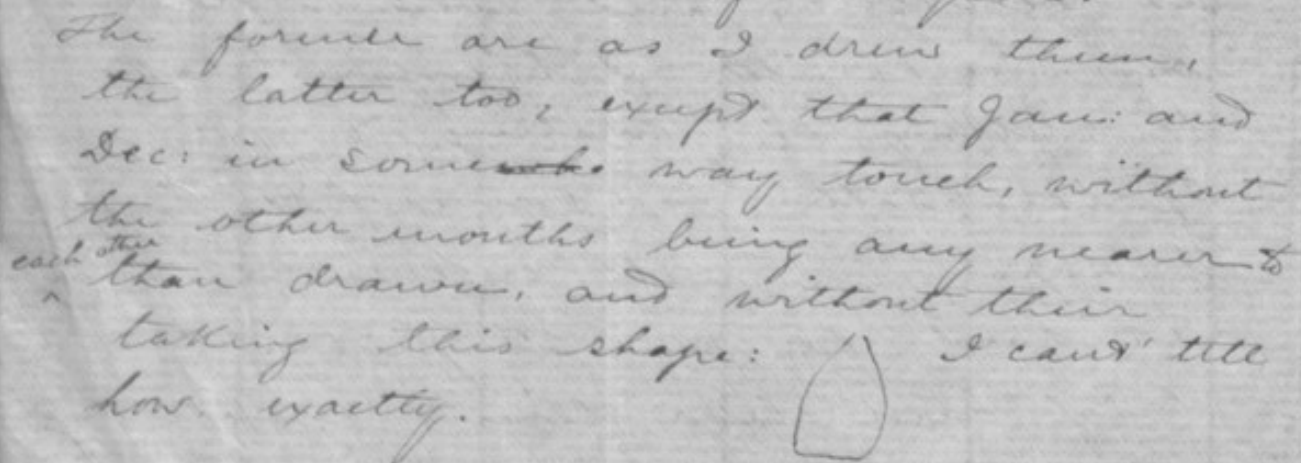 The former are as I drew them,
the latter too, except that Jan: and
Dec: in some way touch, without
the other months being any nearer to
each other than drawn, and without their
taking this shape: I can't tell
how exactly.